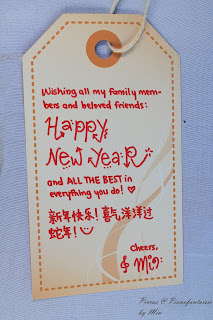 Wishing all my family mem-
bers and beloved friends:
Happy
New Year
and ALL THE BEST in
everything you do!
新年快乐! 喜气洋洋过
蛇年!
Cheers,
Min
Pieces @ Pianofantasie
by Min